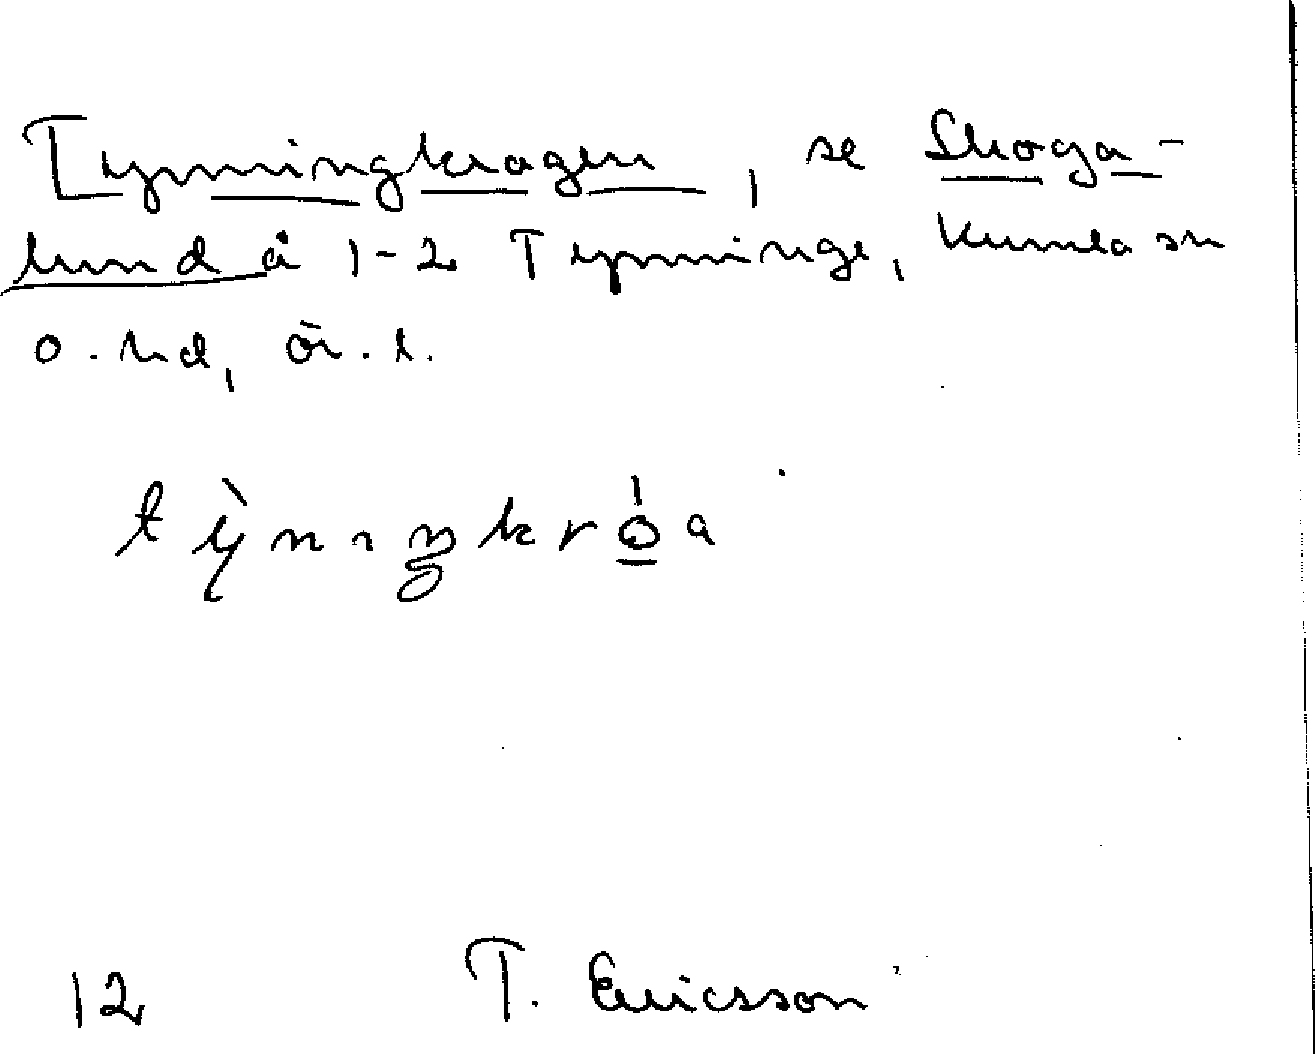 Tynningkragen, se Skoga-
lund å 1-2 Tynninge, Kumla sn
Ö. hd, Ör. l.
tỳnıŋkrǫ́a
12 T. Ericsson